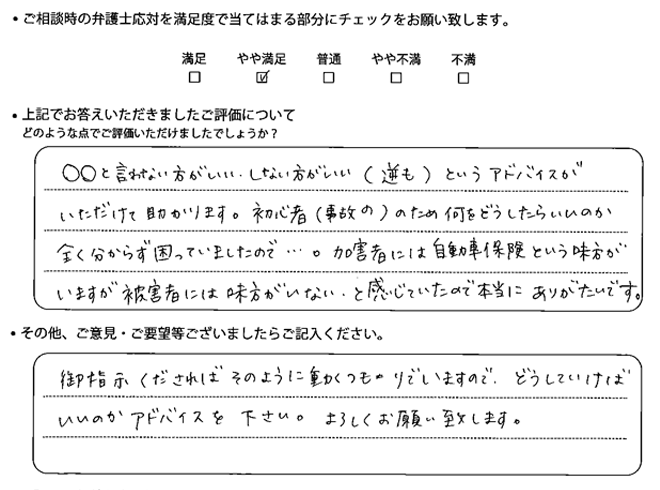 ・ご相談時の弁護士応対を満足度で当てはまる部分にチェックをお願い致します。
満足 やや満足 普通 やや不満 不満
□ ☑ □ □ □
・上記でお答えいただきましたご評価について
どのような点でご評価いただけましたでしょうか？
○○と言わない方がいい、しない方がいい(逆も)というアドバイスが
いただけて助かります。初心者(事故の)のため何をどうしたらいいのか
全く分からず困っていましたので…。加害者には自動車保険という味方が
いますが被害者には味方がいない、と感じていたので本当にありがたいです。
・その他、ご意見・ご要望等ございましたらご記入ください。
御指示くださればそのように動くつもりでいますので、どうしていけば
いいのかアドバイスを下さい。よろしくお願い致します。